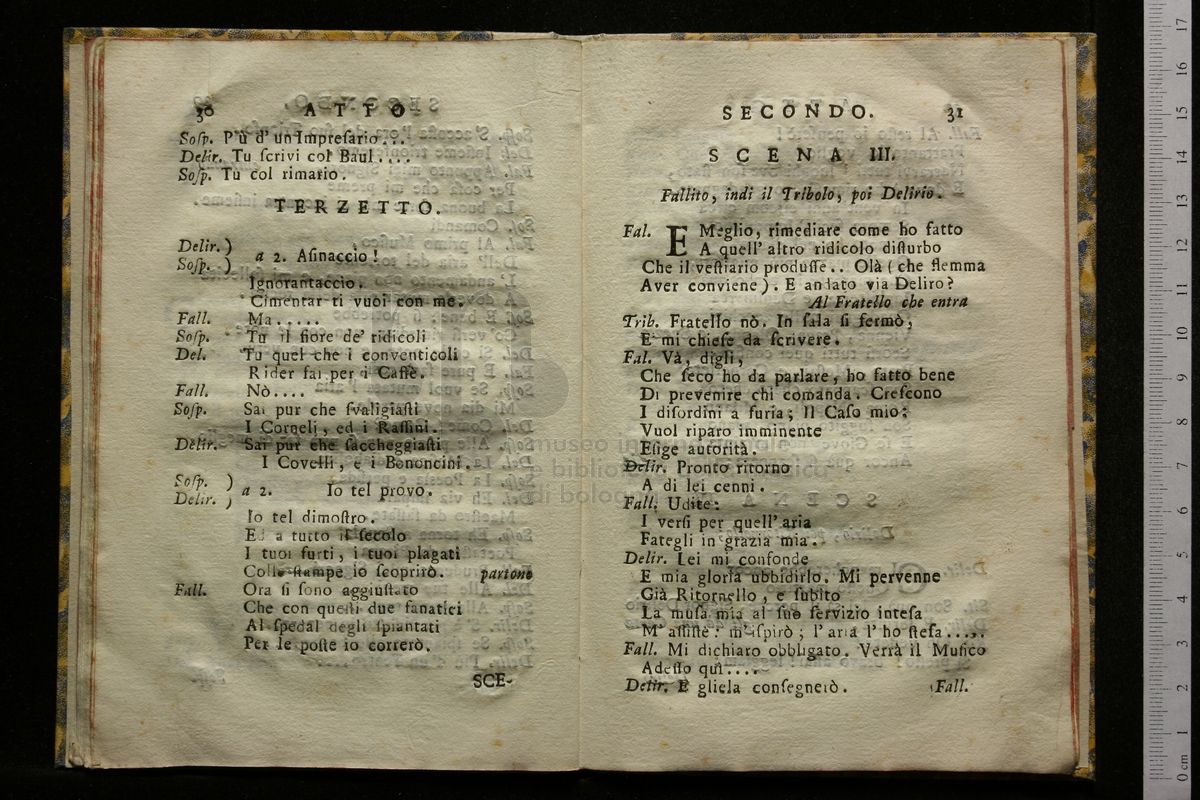 30 ATTO
Sosp. P'ù d' un Impresario...
Delir. Tu scrivi col Baul....
Sosp. Tu col rimario.
TERZETTO.
Delir. )
Sosp. ) a 2. Asinaccio!
Ignorantaccio.
Cimentar ti vuoi con me.
Fall. Ma.....
Sosp. Tu il fiore de' ridicoli
Del. Tu quel che i conventicoli
Rider fai per i Caffè.
Fall. Nò....
Sosp. Sai pur che svaligiasti
I Corneli, ed i Rassini.
Delir. Sai pur che saccheggiasti
I Covelli, e i Bononcini.
Sosp. )
Delir. ) a 2. Io tel provo.
Io tel dimostro.
Ed a tutto il secolo
I tuoi furti, i tuoi plagati
Colle stampe io scoprirò. partono
Fall. Ora si sono aggiustato
Che con questi due fanatici
Al spedal degli spiantati
Per le poste io correrò.
SCE-
SECONDO. 31
SCENA III.
Fallito, indi il Tribolo, poi Delirio.
Fal. E Meglio, rimediare come ho fatto
A quell' altro ridicolo disturbo
Che il vestiario produsse.. Olà (che flemma
Aver conviene). E andato via Deliro?
Al Fratello che entra
Trib. Fratello nò. In sala si fermò,
E mi chiese da scrivere.
Fal. Và, digli,
Che seco ho da parlare, ho fatto bene
Di prevenire chi comanda. Crescono
I disordini a furia; Il Caso mio:
Vuol riparo imminente
Esige autorità.
Delir. Pronto ritorno
A di lei cenni.
Fall. Udite:
I versi per quell' aria
Fategli in grazia mia.
Delir. Lei mi confonde
E mia gloria ubbidirlo. Mi pervenne
Già Ritornello, e subito
La musa mia al suo servizio intesa
M' assiste: m' ispirò; l' aria l' ho stesa.....
Fall. Mi dichiaro obbligato. Verrà il Musico
Adesso quì....
Delir. E gliela consegnerò. Fall.
museo internazionale
e biblioteca
di bologna